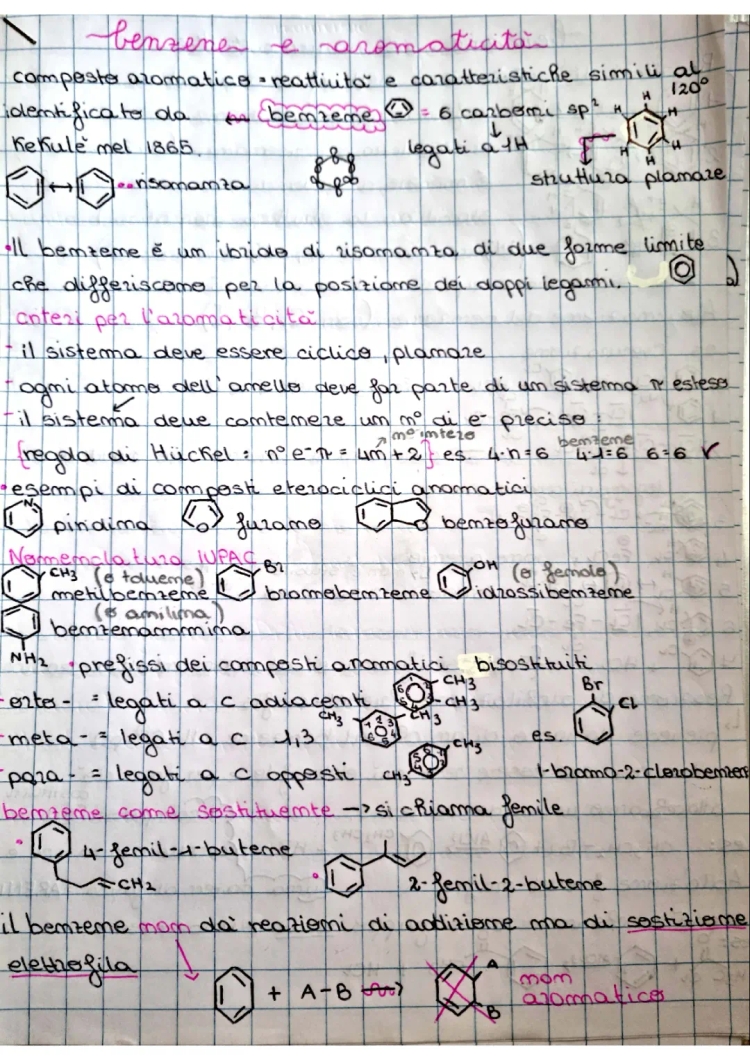 benzene e aromaticità
composto aromatico = reattività e caratteristiche simili al
identificato da ↔ benzene = 6 carboni sp² 120°
Kekulè nel 1865. legati a 1H
↔ risonanza struttura planare
H H H H H H
•Il benzene è un ibrido di risonanza di due forme limite
che differiscono per la posizione dei doppi legami.
criteri per l'aromaticità
- il sistema deve essere ciclico, planare
- ogni atomo dell'anello deve far parte di un sistema π esteso
- il sistema deve contenere un n° di e- preciso :
n° intero benzene
{regola di Hückel : n° e-π = 4n + 2} es. 4·n=6 4·1=6 6=6 ✓
•esempi di composti eterociclici aromatici
N piridina O furano O benzofurano
Nomenclatura IUPAC
CH3 (o toluene) Br OH (o fenolo)
metilbenzene bromobenzene idrossibenzene
(o anilina)
benzenammina
NH2 •prefissi dei composti aromatici bisostituiti
- orto- = legati a c adiacenti CH3 CH3 Br
- meta- = legati a c 1,3 CH3 CH3 es. Cl
- para- = legati a c opposti CH3 CH3 1-bromo-2-clorobenzen
benzene come sostituente → si chiama fenile
• 4-fenil-1-butene
CH2 • 2-fenil-2-butene
il benzene non dà reazioni di addizione ma di sostizione
elettrofila
+ A-B → A B non
aromatico